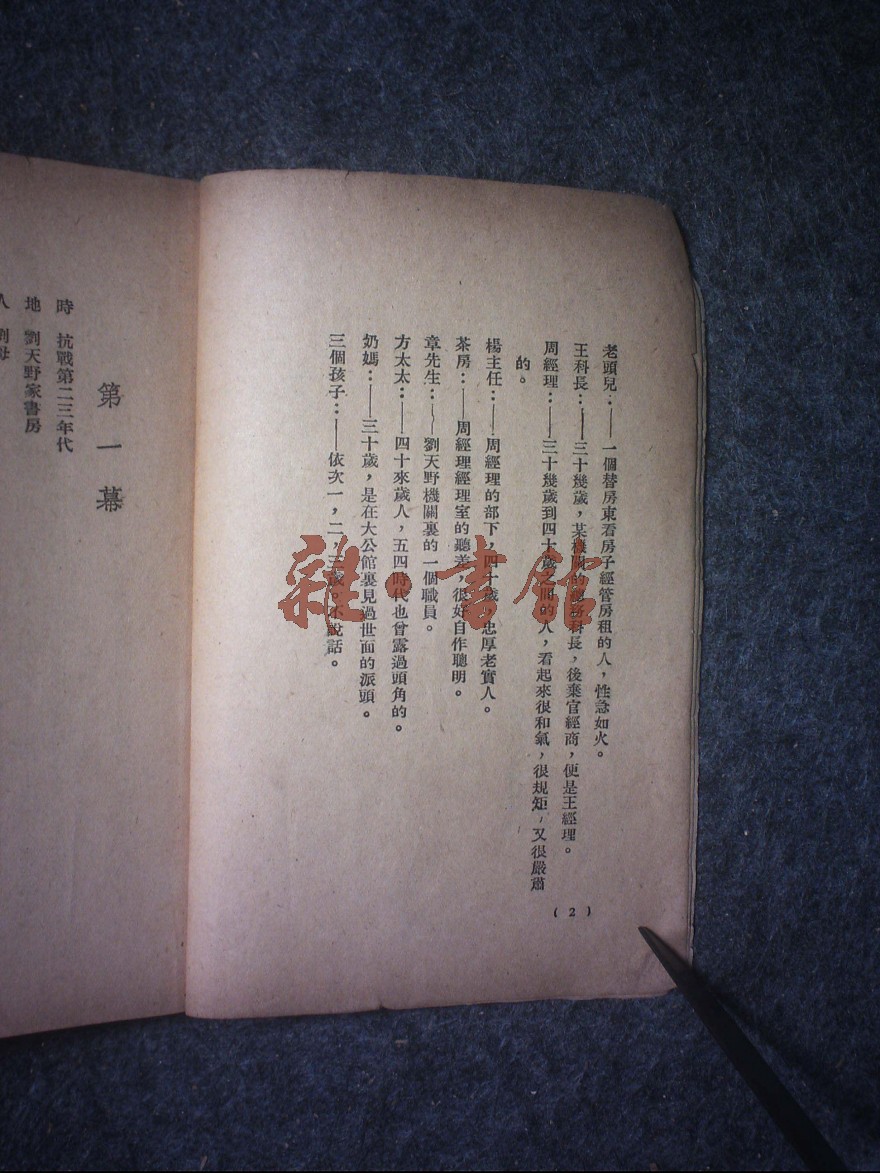 老頭兒：——一個替房東看房子經管房租的人，性急如火。
王科長：——三十幾歲，某機關的總務科長，後棄官經商，便是王經理。
周經理：——三十幾歲到四十歲之間的人，看起來很和氣，很規矩，又很嚴肅
的。
楊主任：——周經理的部下，四十歲，忠厚老實人。
茶房：——周經理經理室的聽差，很好自作聰明。
章先生：——劉天野機關裏的一個職員。
方太太：——四十來歲人，五四時代也曾露過頭角的。
奶媽：——三十歲，是在大公館裏見過世面的派頭。
三個孩子：——依次一，二，三歲。不說話。
(2)
第一幕
時 抗戰第二三年代
地 劉天野家書房
人 劉母
雜·書館